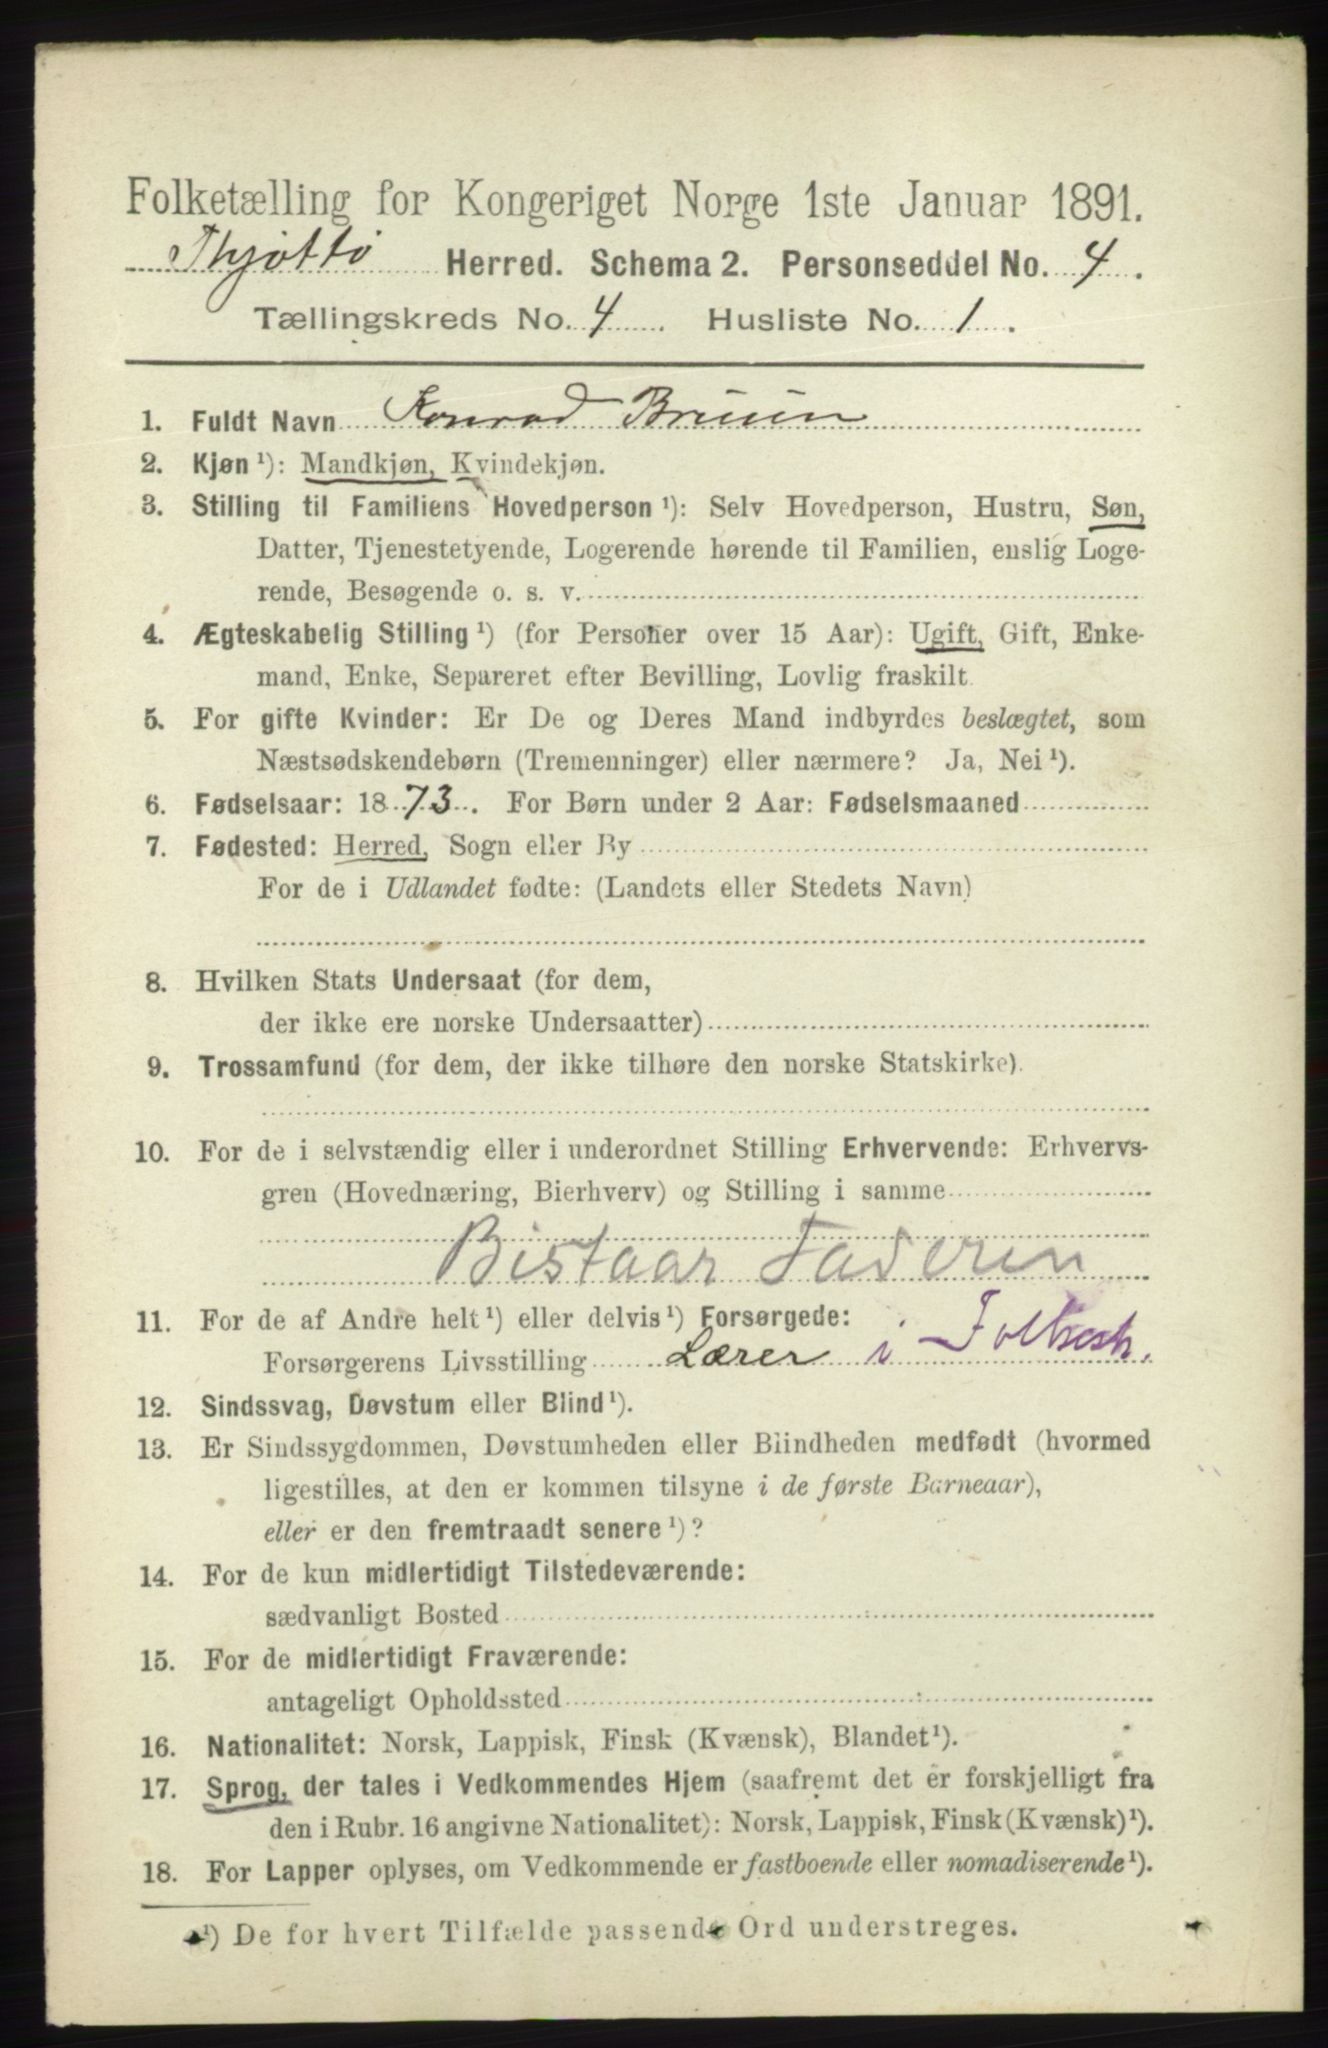 Folketælling for Kongeriget Norge 1ste Januar 1891.
Thjøttø Herred. Schema 2. Personseddel No. 4.
Tællingskreds No. 4. Husliste No. 1.
1. Fuldt Navn Konrad Bruun
2. Kjøn ¹): Mandkjøn, Kvindekjøn.
3. Stilling til Familiens Hovedperson ¹): Selv Hovedperson, Hustru, Søn,
Datter, Tjenestetyende, Logerende hørende til Familien, enslig Loge-
rende, Besøgende o. s. v.
4. Ægteskabelig Stilling ¹) (for Personer over 15 Aar): Ugift, Gift, Enke-
mand, Enke, Separeret efter Bevilling, Lovlig fraskilt.
5. For gifte Kvinder: Er De og Deres Mand indbyrdes beslægtet, som
Næstsødskendebørn (Tremenninger) eller nærmere? Ja, Nei ¹).
6. Fødselsaar: 1873. For Børn under 2 Aar: Fødselsmaaned
7. Fødested: Herred, Sogn eller By
For de i Udlandet fødte: (Landets eller Stedets Navn)
8. Hvilken Stats Undersaat (for dem,
der ikke ere norske Undersaatter)
9. Trossamfund (for dem, der ikke tilhøre den norske Statskirke).
10. For de i selvstændig eller i underordnet Stilling Erhvervende: Erhvervs-
gren (Hovednæring, Bierhverv) og Stilling i samme
Bistaar Faderen
11. For de af Andre helt ¹) eller delvis ¹) Forsørgede:
Forsørgerens Livsstilling Lærer i Folkesk.
12. Sindssvag, Døvstum eller Blind ¹).
13. Er Sindssygdommen, Døvstumheden eller Blindheden medfødt (hvormed
ligestilles, at den er kommen tilsyne i de første Barneaar),
eller er den fremtraadt senere ¹)?
14. For de kun midlertidigt Tilstedeværende:
sædvanligt Bosted
15. For de midlertidigt Fraværende:
antageligt Opholdssted
16. Nationalitet: Norsk, Lappisk, Finsk (Kvænsk), Blandet ¹).
17. Sprog, der tales i Vedkommendes Hjem (saafremt det er forskjelligt fra
den i Rubr. 16 angivne Nationalitet): Norsk, Lappisk, Finsk (Kvænsk) ¹).
18. For Lapper oplyses, om Vedkommende er fastboende eller nomadiserende ¹).
¹) De for hvert Tilfælde passende Ord understreges.